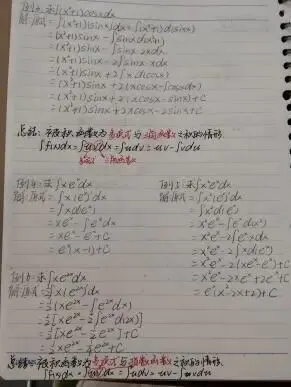 例3:求∫(x²+1)cosxdx
解:原式=∫(x²+1)(sinx)'dx=∫(x²+1)d(sinx)
=(x²+1)sinx-∫sinxd(x²+1)
=(x²+1)sinx-∫sinx·2xdx
=(x²+1)sinx-2∫sinx·xdx
=(x²+1)sinx+2∫xd(cosx)
=(x²+1)sinx+2(xcosx-∫cosxdx)
=(x²+1)sinx+2(xcosx-sinx)+C
=(x²+1)sinx+2xcosx-2sinx+C
总结:被积函数为多项式与三角函数之积的情形
∫f(x)dx=∫uv'dx=∫udv=uv-∫vdu
例4:求∫xeˣdx
解:原式=∫x(eˣ)'dx
=∫xd(eˣ)
=xeˣ-∫eˣdx
=xeˣ-eˣ+C
=eˣ(x-1)+C
例5:求∫x²eˣdx
解:原式=∫x²(eˣ)'dx
=∫x²d(eˣ)
=x²eˣ-∫eˣd(x²)
=x²eˣ-2∫eˣxdx
=x²eˣ-2∫xd(eˣ)
=x²eˣ-2(xeˣ-eˣ)+C
=x²eˣ-2xeˣ+2eˣ+C
=eˣ(x²-2x+2)+C
例6:求∫xe²ˣdx
解:原式=½∫x(e²ˣ)'dx
=½[xe²ˣ-∫e²ˣdx]
=½[xe²ˣ-½∫e²ˣd(2x)]
=½[xe²ˣ-½e²ˣ]+C
=½xe²ˣ-¼e²ˣ+C
总结:被积函数为多项式与指数函数之积的情形
∫f(x)dx=∫uv'dx=∫udv=uv-∫vdu